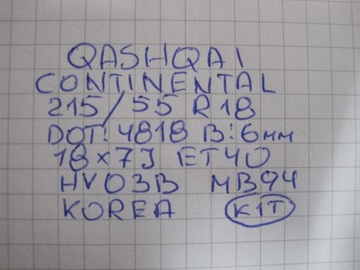 QASHQAI
CONTINENTAL
215/55 R18
DOT: 4818 B: 6мм
18x7J ET40
HV03B MB94
KOREA K1T